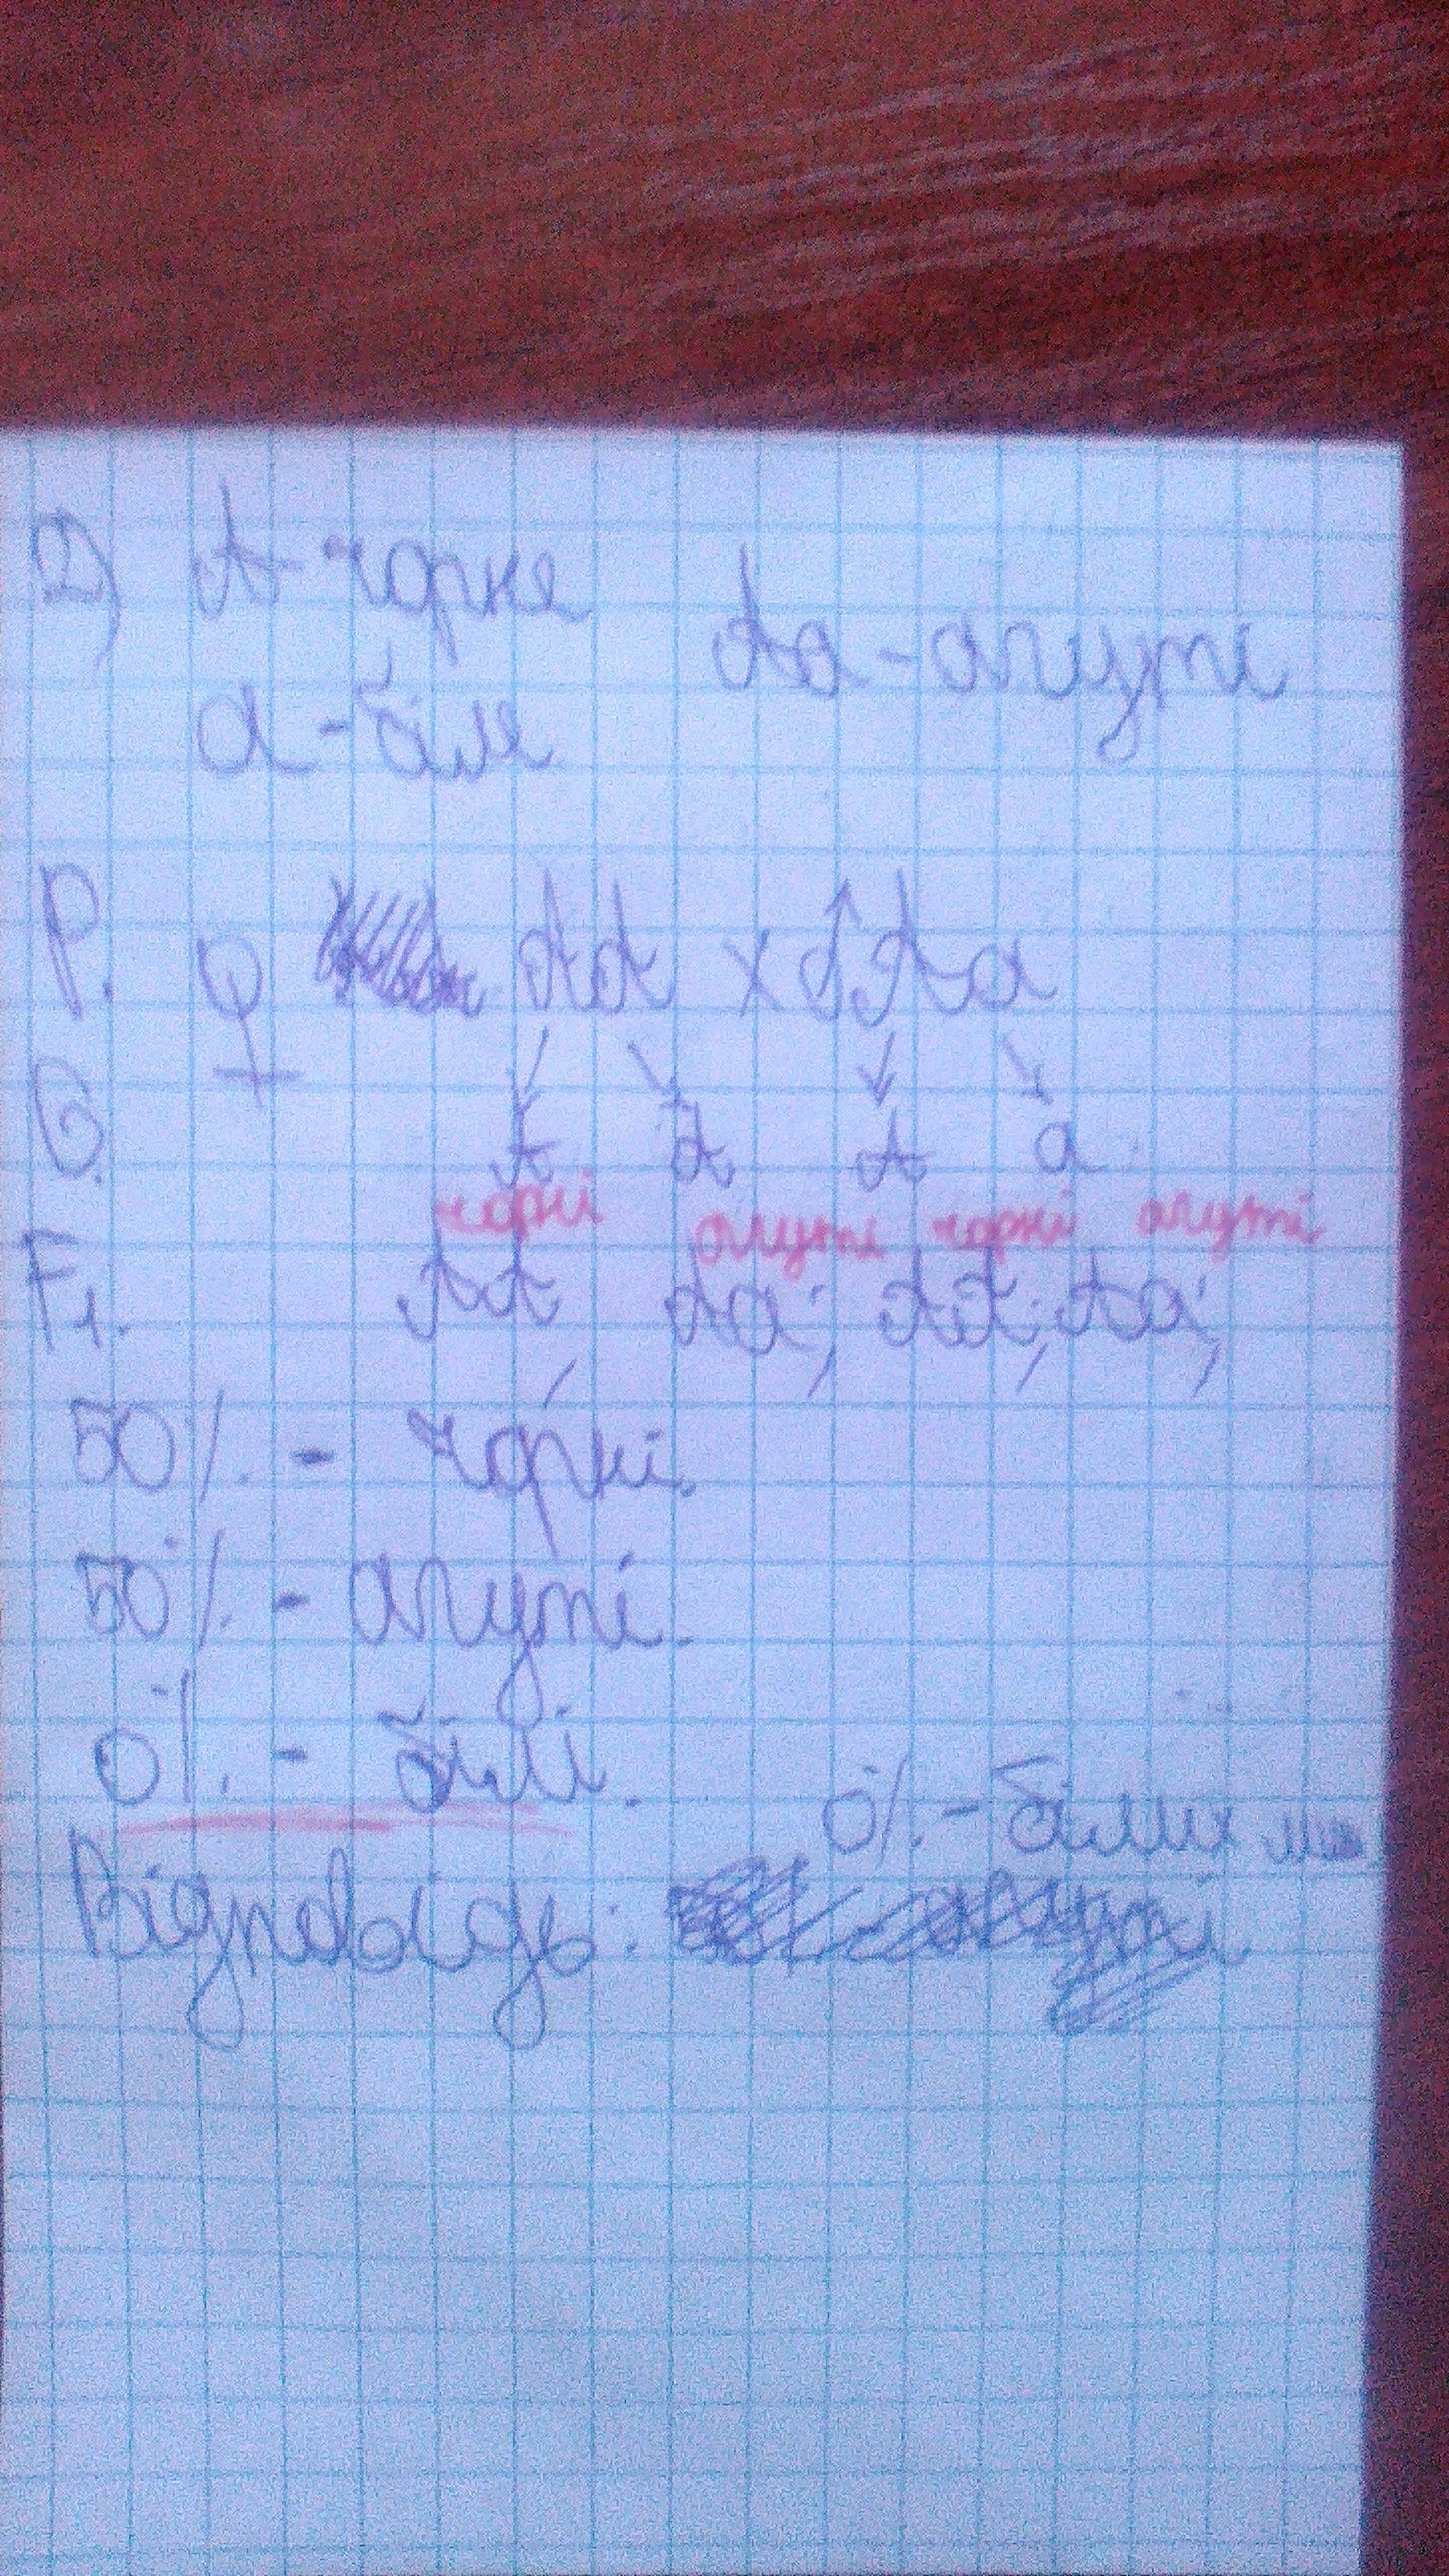 2) А - чорне
Аа - агуті
а - біле
P. ♀ АА х ♂ Аа
G. А А А а
чорні агуті чорні агуті
F1. АА Аа; АА; Аа;
50% - чорні.
50% - агуті.
0% - білі.
0% - білих
Відповідь: